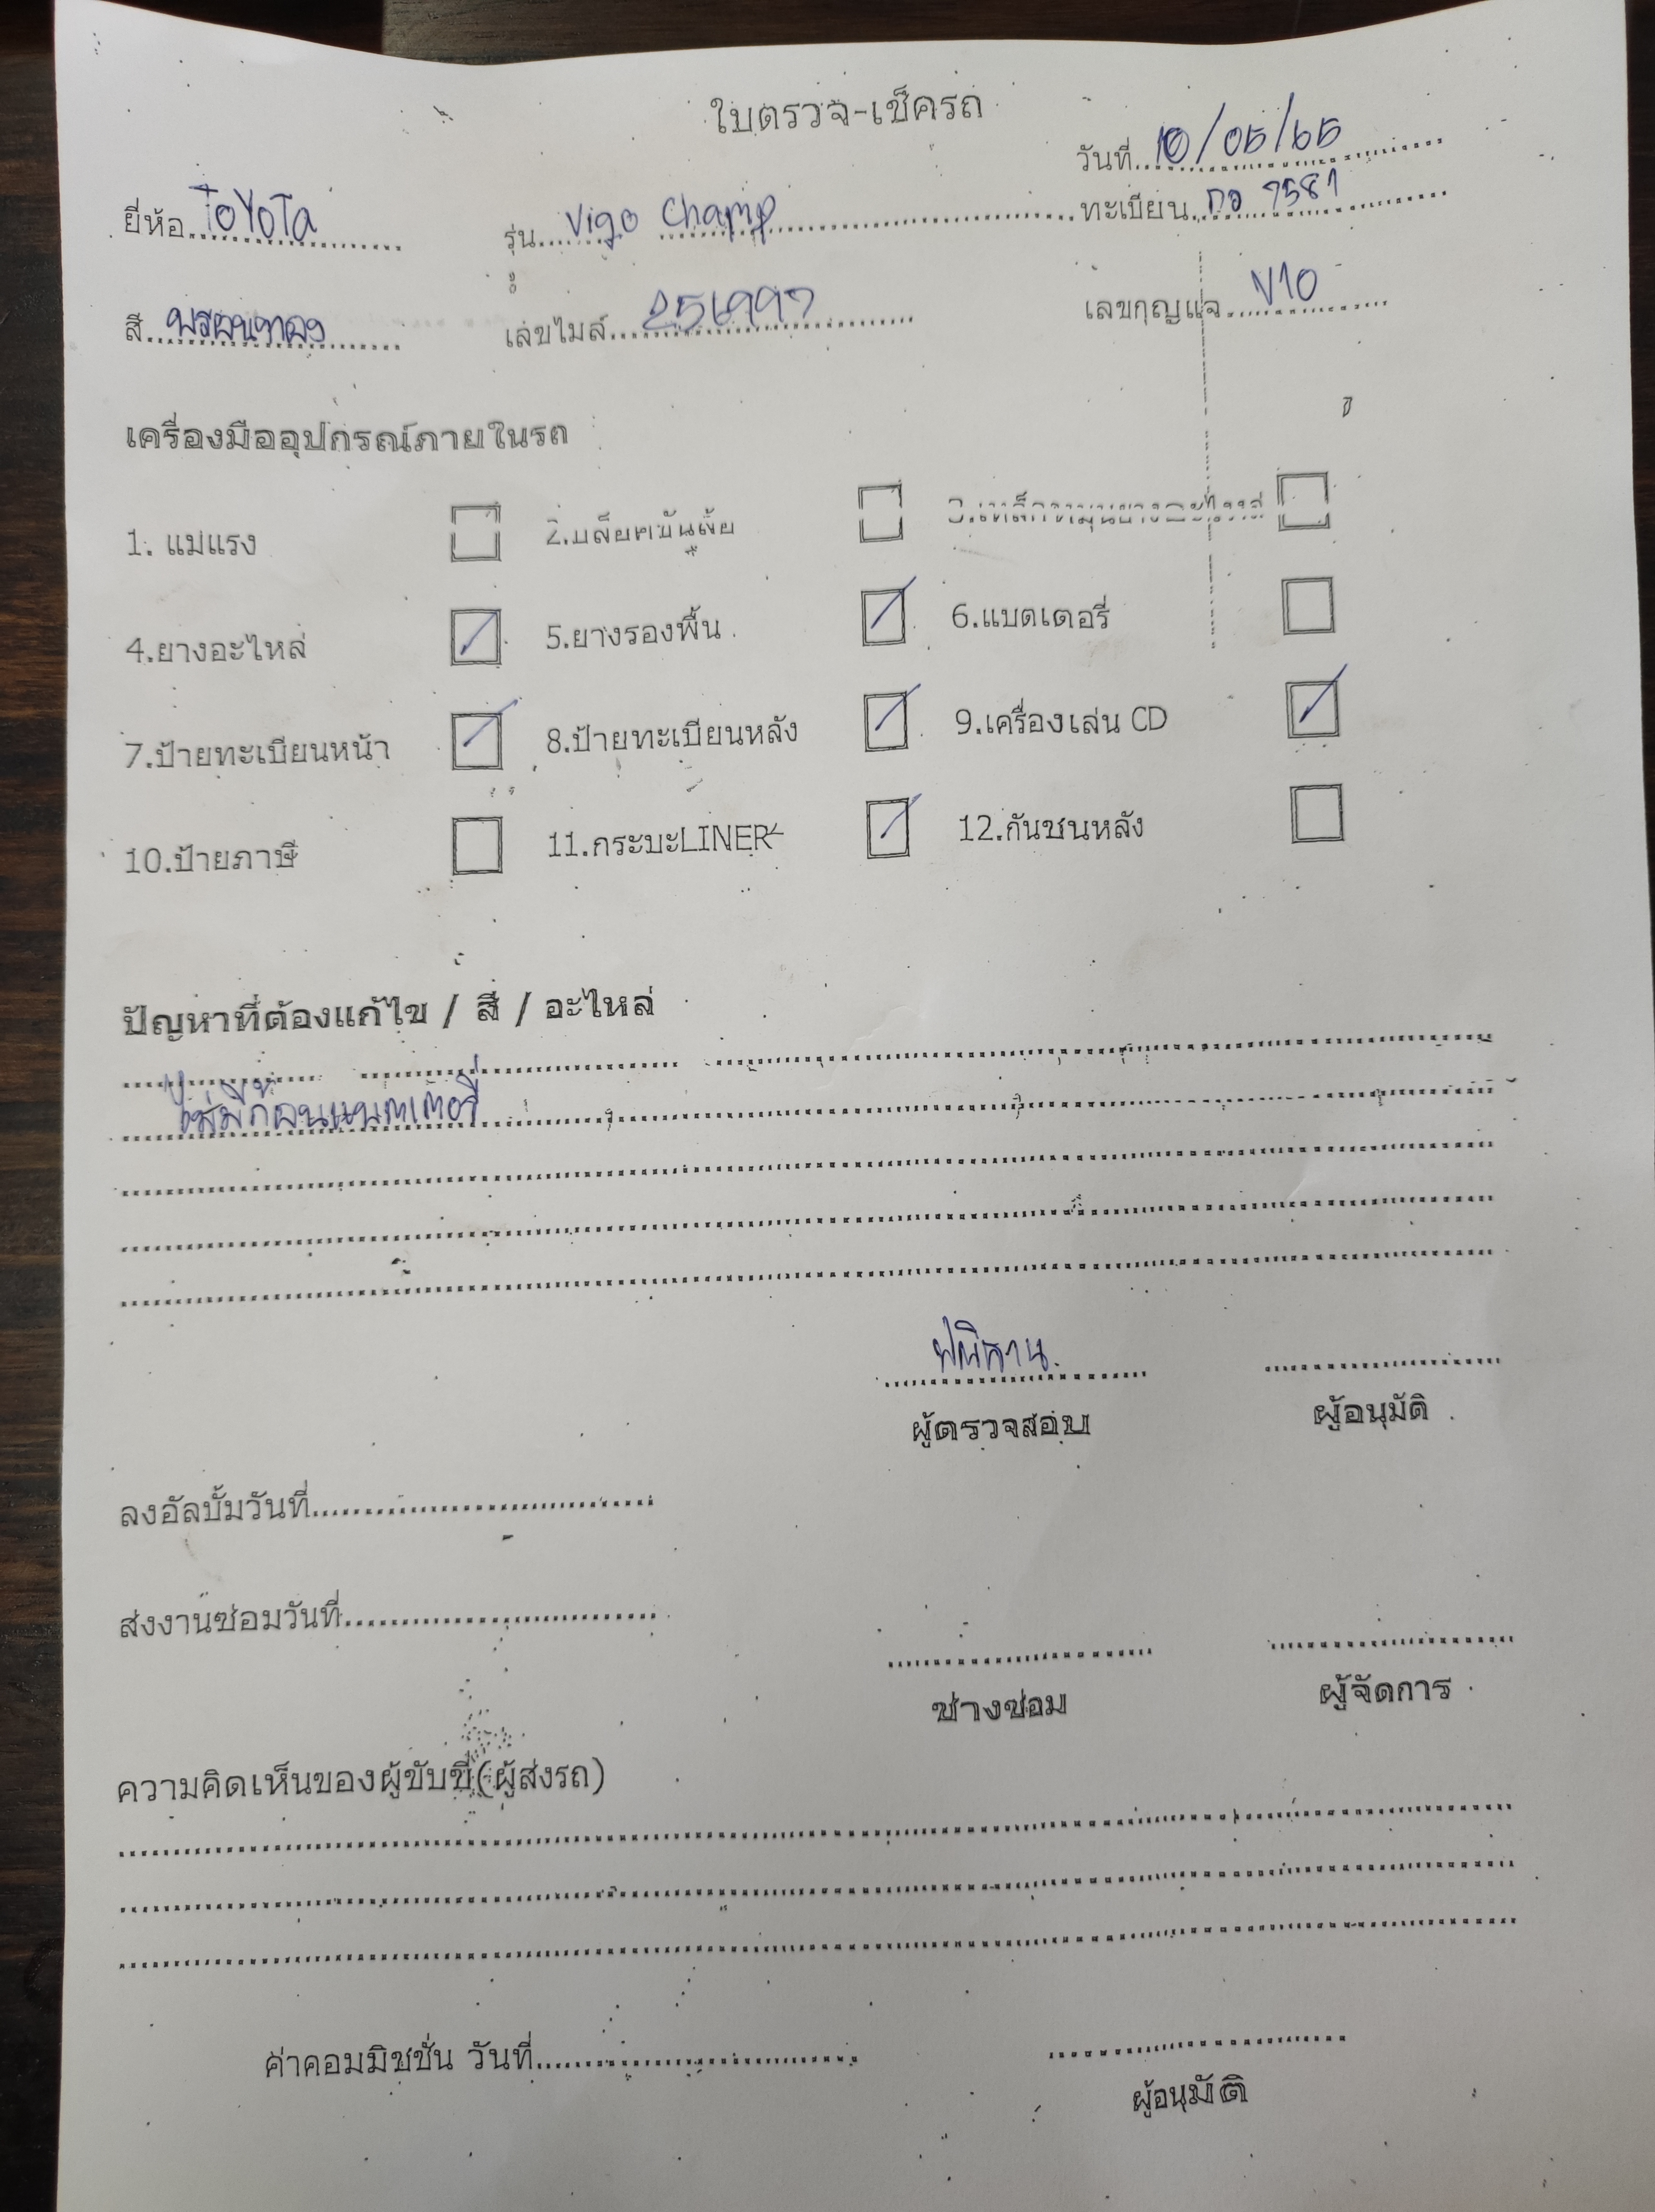 ใบตรวจ-เช็ครถ
วันที่ 10/05/65
ยี่ห้อ ToYoTa รุ่น Vigo Champ ทะเบียน 7581
สี เลขไมล์ เลขกุญแจ V10
เครื่องมืออุปกรณ์ภายในรถ
1. แม่แรง 2.บล๊อคขันล้อ 3.เหล็กหมุนยางอะไหล่
4.ยางอะไหล่ 5.ยางรองพื้น 6.แบตเตอรี่
7.ป้ายทะเบียนหน้า 8.ป้ายทะเบียนหลัง 9.เครื่องเล่น CD
10.ป้ายภาษี 11.กระบะLINER 12.กันชนหลัง
ปัญหาที่ต้องแก้ไข / สี / อะไหล่
ไม่มีก้อนแบตเตอรี่
ผู้ตรวจสอบ ผู้อนุมัติ
ลงอัลบั้มวันที่
ส่งงานซ่อมวันที่
ช่างซ่อม ผู้จัดการ
ความคิดเห็นของผู้ขับขี่(ผู้ส่งรถ)
ค่าคอมมิชชั่น วันที่
ผู้อนุมัติ